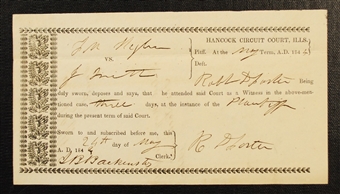 HANCOCK CIRCUIT COURT, ILLS.
Plff. At the May Term, A.D. 184
VS.
Deft.
Robt D Foster Being
duly sworn, deposes and says, that he attended said Court as a Witness in the above-men-
tioned case, three days, at the instance of the Plaintiff
during the present term of said Court.
Sworn to and subscribed before me, this
24th day of May
A. D. 184
Clerk.
R D Foster